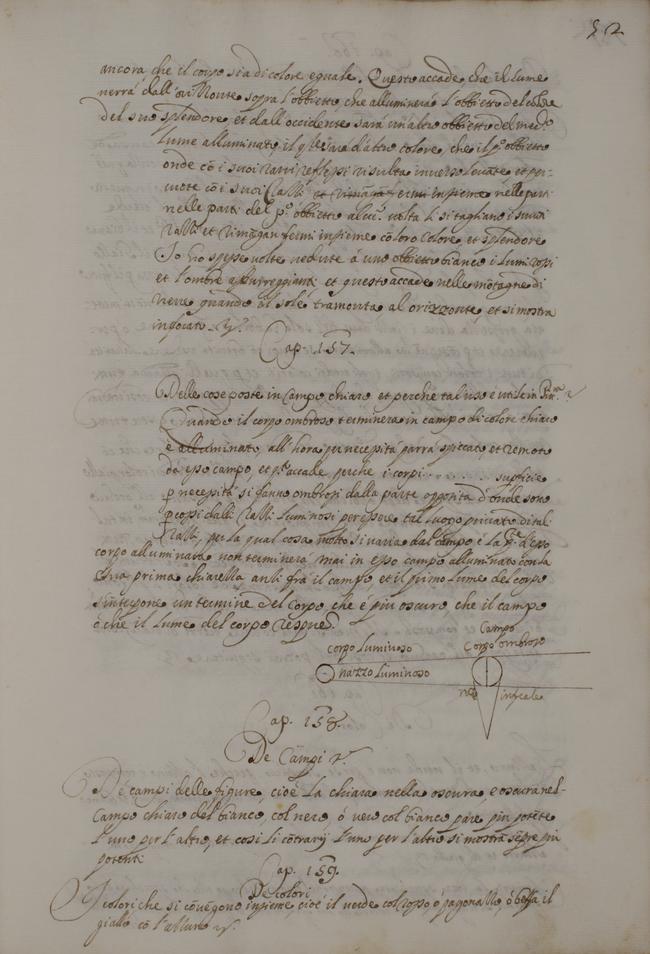 52
ancora, che il corpo sia di colore eguale. Questo accade che il lume
verrà dall'orizonte sopra l'obbietto, che alluminerà l'obbietto del colore
del suo splendore, et dall'occidente sarà un'altro obbietto del med.o
lume alluminato, il q̃le sara d'altro colore, che il p.o obbietto
onde cõ i suoi razzi reflessi risulta inverso levante et per-
cuote cõ i suoi razzi nelle parti
nelle parti del p.o obbietto volta li si tagliano i suoi
razzi et rimagan fermi insieme cõ loro colore, et splendore
Io ho spesse volte vedute à uno obbietto bianco i lumi rossi
et l'ombre azzurreggianti et questo accade nelle mõtagne di
neve quando il sole tramonta al orizzonte, et si mostra
infocato
Cap. 157.
Delle cose poste in campo chiaro et perche tal'uso è utile in
Quando il corpo ombroso terminera in campo di colore chiaro
e alluminato, all'hora per necessità parrà spiccato et remoto
da esso campo, et q.to accade, perche i corpi ......... supficie
p̱ necessità si fanno ombrosi dalla parte opposita d'onde sono
p̱cossi dalli razzi luminosi per essere tal luogo privato di tali
razzi, per la qual cosa molto si varia dal campo e la d'esso
corpo alluminata non terminerà mai in esso campo alluminato con la
sua prima chiarezza anzi frà il campo, et il primo lume del corpo
s'interpone un termine del corpo, che é piu oscuro, che il campo
ò che il lume del corpo
corpo luminoso
Campo
Corpo ombroso
razzo luminoso
Cap. 158.
De Campi
De campi delle figure, cioè la chiara nella oscura, e oscura nel
Campo chiaro del bianco, col nero, ò vero col bianco pare piu potẽte
l'uno per l'altro, et cosi li cõtrarij l'uno per l'altro si mostra sẽpre piu
potenti
Cap. 159.
De colori
I colori che si cõuẽgono insieme cioè il verde col rosso, ò pagonazzo, ò il
giallo cõ l'azurro